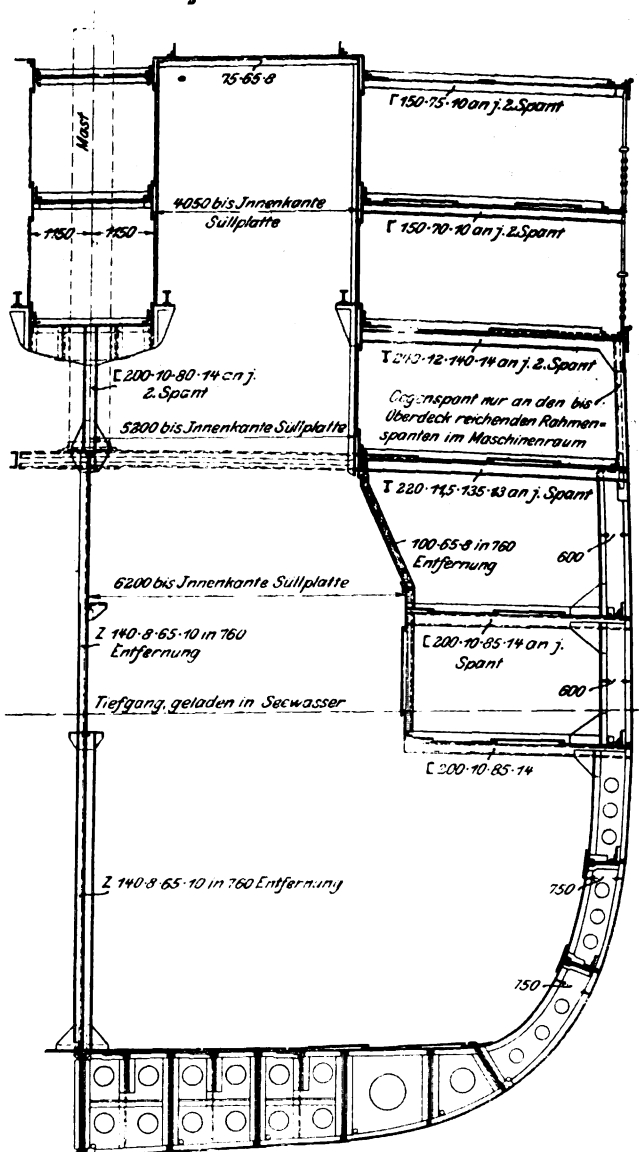 75·65·8
Mast
Γ 150·75·10 an j. 2. Spant
4050 bis Innenkante
Süllplatte
1150 1150
Γ 150·70·10 an j. 2. Spant
[ 200·10·80·14 an j.
2. Spant
12·140·14 an j. 2. Spant
Gegenspant nur an den bis
Oberdeck reichenden Rahmen=
spanten im Maschinenraum
5200 bis Innenkante Süllplatte
220·11,5·135·13 an j. Spant
100·65·8 in 760
Entfernung
600
6200 bis Innenkante Süllplatte
Z 140·8·65·10 in 760
Entfernung
[ 200·10·85·14 an j.
Spant
600
Tiefgang, geladen in Seewasser
[ 200·10·85·14
Z 140·8·65·10 in 760 Entfernung
750
750